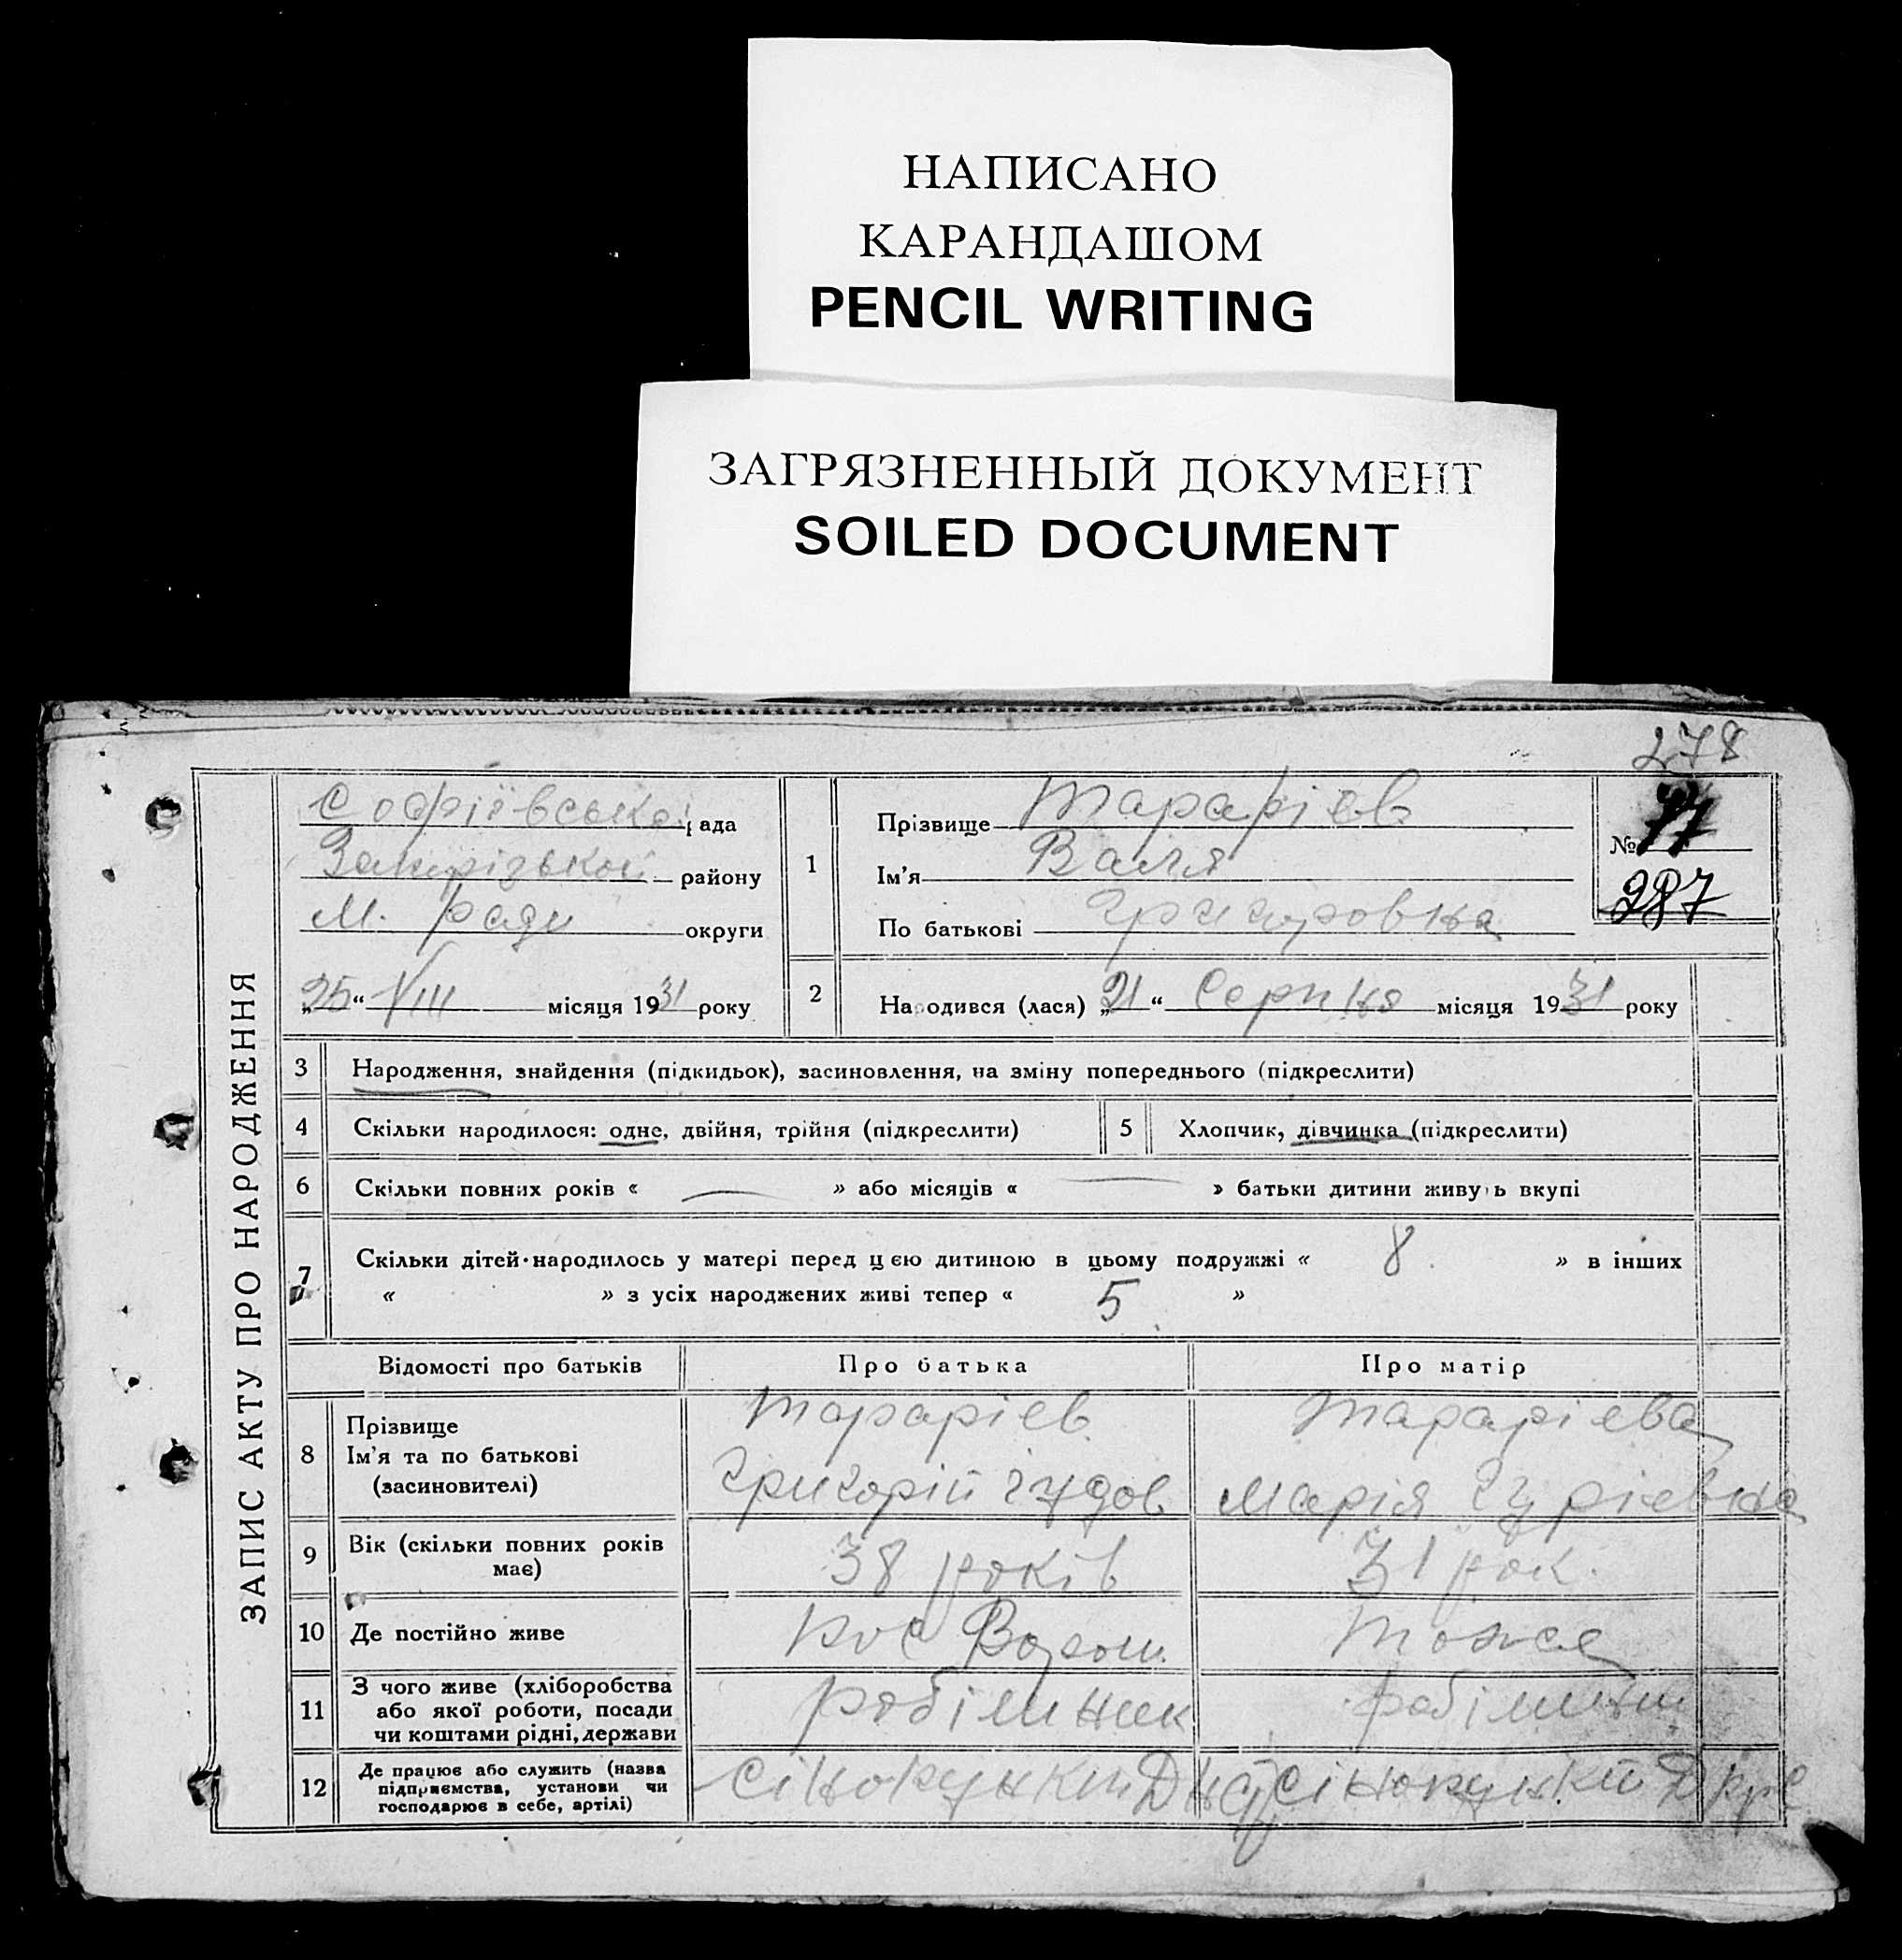 НАПИСАНО
КАРАНДАШОМ
PENCIL WRITING
ЗАГРЯЗНЕННЫЙ ДОКУМЕНТ
SOILED DOCUMENT
278
ЗАПИС АКТУ ПРО НАРОДЖЕННЯ
Софіївська рада
Запорізької району
М. Ради округи
„25“ VIII місяця 1931 року
1
Прізвище Тараріев
Ім'я Валя
По батькові Григоровна
№ 77
287
2 Народився (лася) „21“ Серпня місяця 1931 року
3 Народження, знайдення (підкидьок), засиновлення, на зміну попереднього (підкреслити)
4 Скільки народилося: одне, двійня, трійня (підкреслити) 5 Хлопчик, дівчинка (підкреслити)
6 Скільки повних років « — » або місяців « — » батьки дитини живуть вкупі
7 Скільки дітей народилось у матері перед цією дитиною в цьому подружжі « 8 » в інших
« » з усіх народжених живі тепер « 5 »
Відомості про батьків Про батька Про матір
8 Прізвище Тараріев Тараріева
Ім'я та по батькові
(засновителі) Григорій Марія
9 Вік (скільки повних років
має) 38 років 31 рок.
10 Де постійно живе тоже
11 З чого живе (хліборобства
або якої роботи, посади
чи коштами рідні, держави
робітник робітниц
12 Де працює або служить (назва
підприємства, установи чи
господарює в себе, артілі)